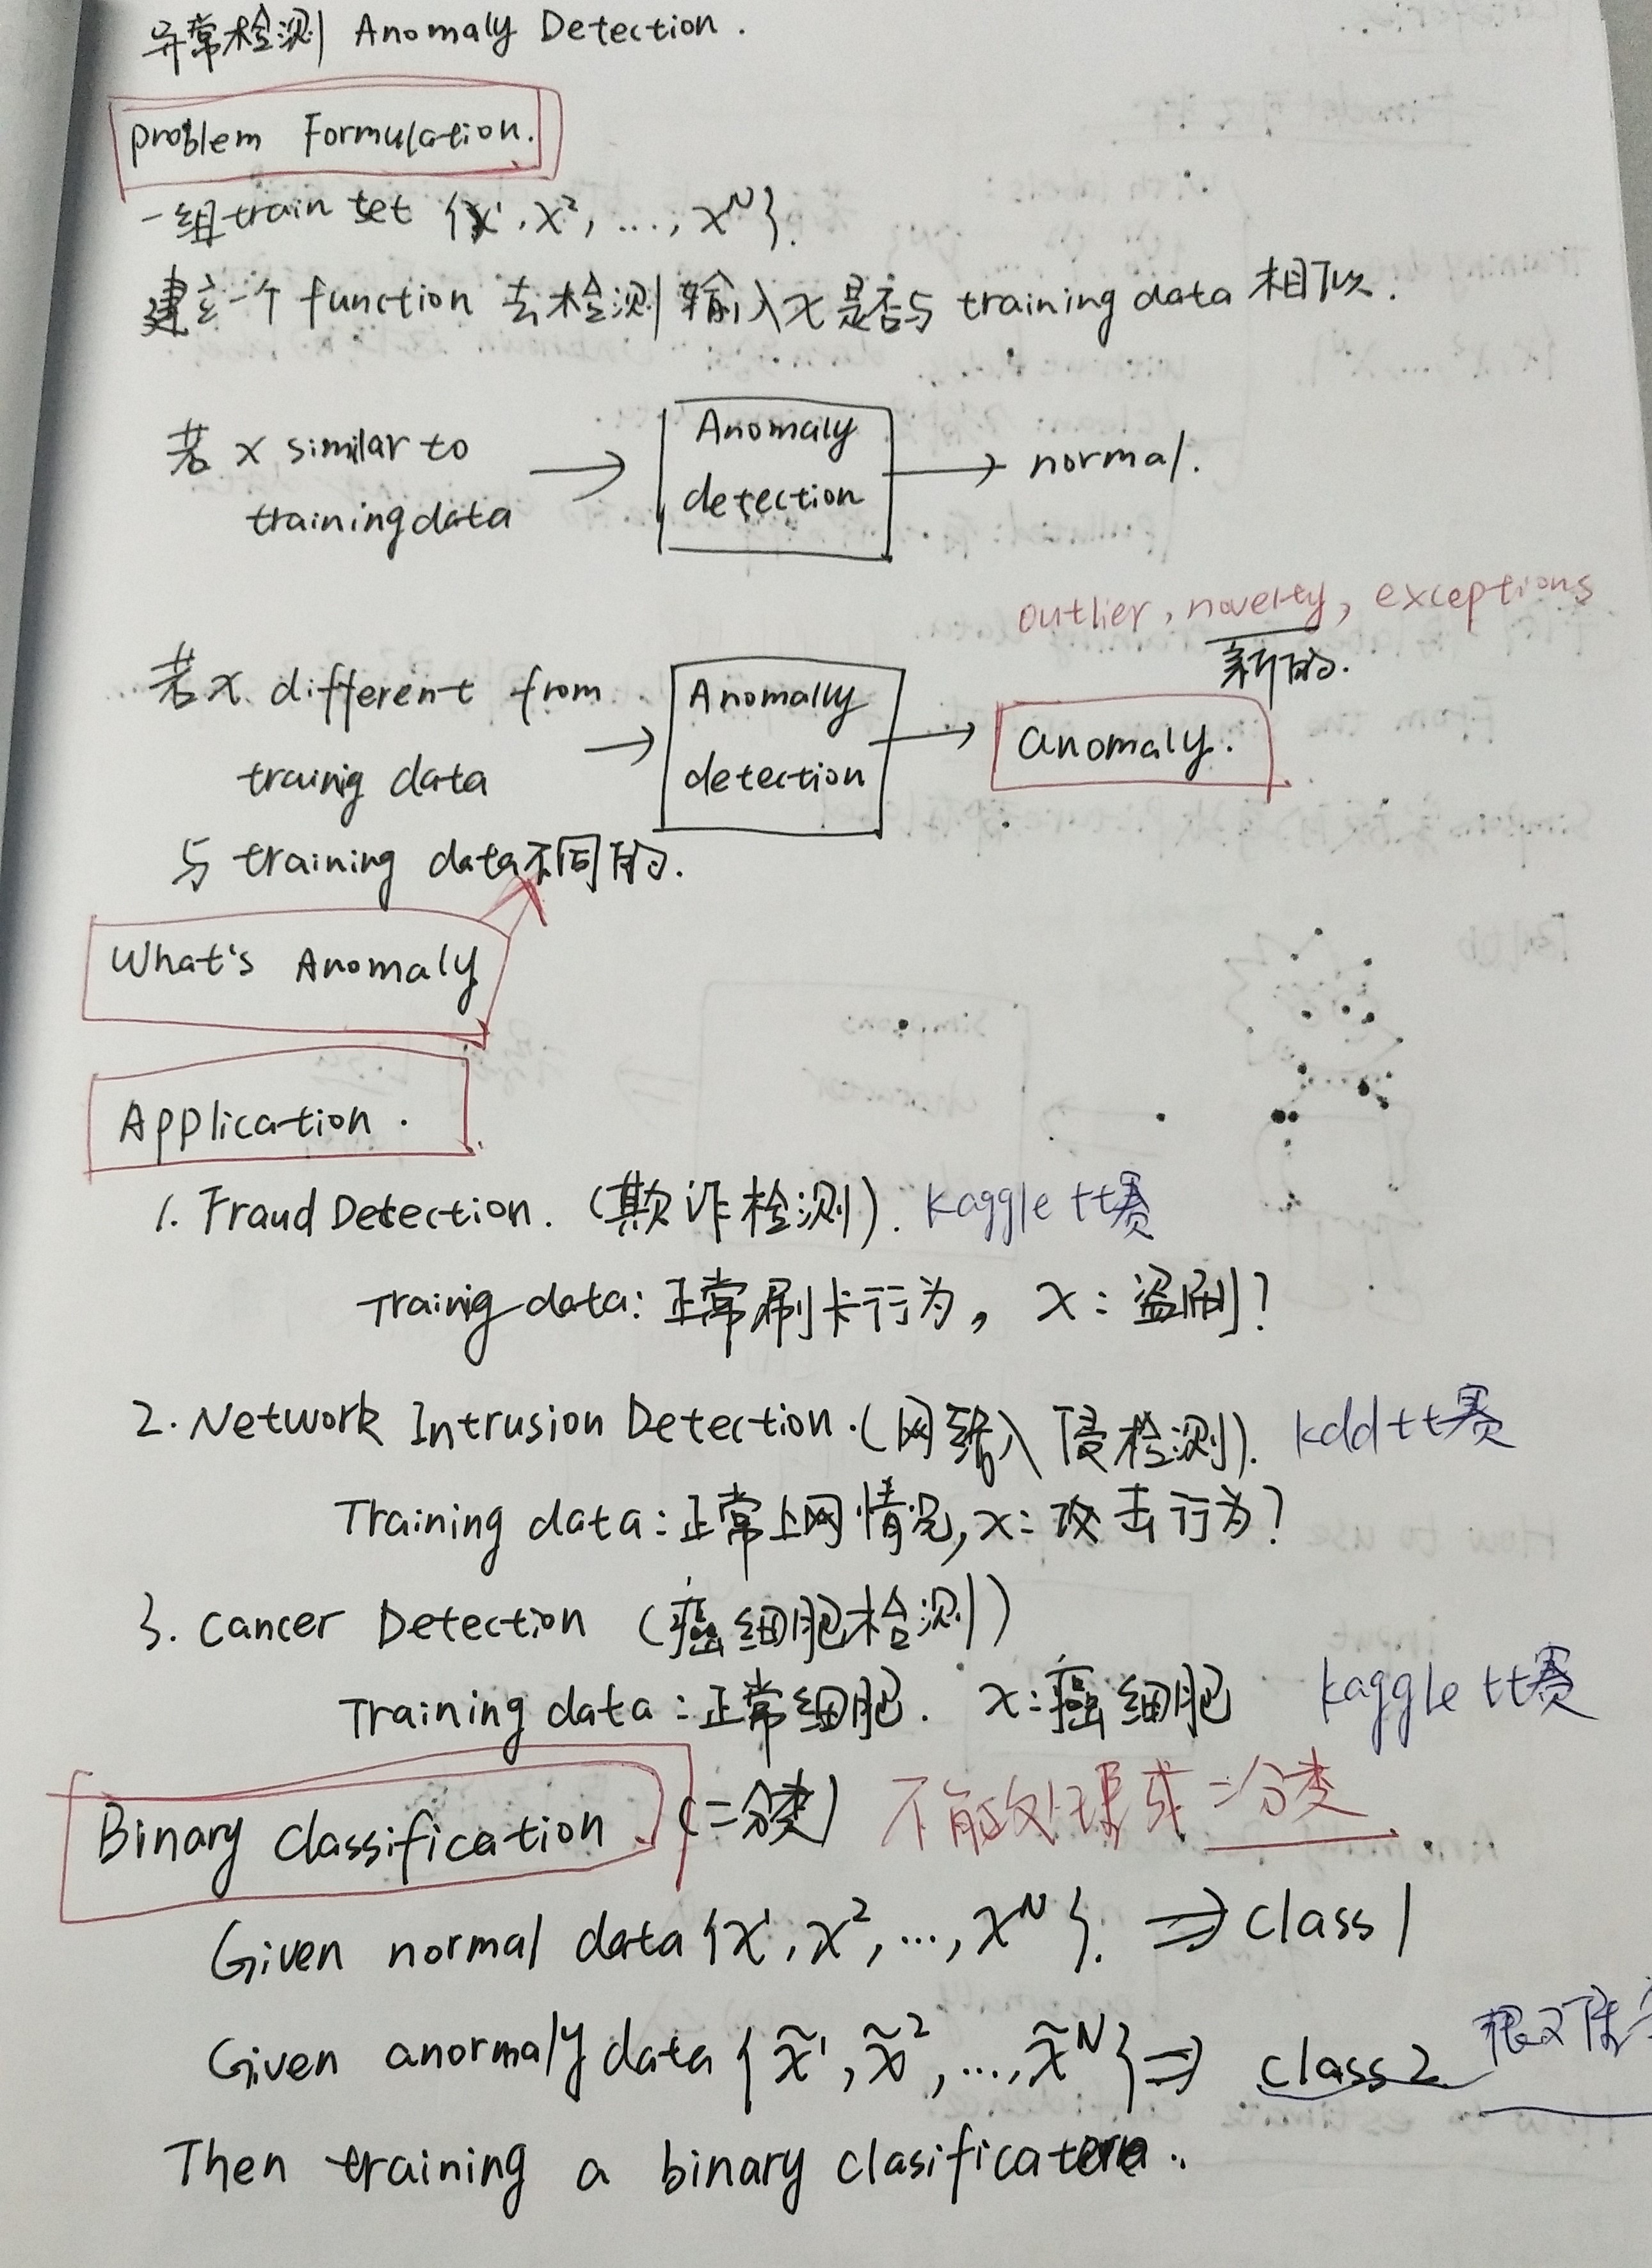 异常检测 Anomaly Detection.
problem Formulation.
一组train set {x¹, x², ..., xᴺ}.
建立一个 function 去检测输入x是否与 training data 相似.
若 x similar to
training data
→
Anomaly
detection
→ normal.
outlier, novelty, exceptions
新的.
若x different from
traing data
→
Anomally
detection
→ anomaly.
与 training data不同的.
What's Anomaly
Application.
1. Fraud Detection. (欺诈检测). kaggle 比赛
Traing data: 正常刷卡行为, x: 盗刷?
2. Network Intrusion Detection. (网络入侵检测). kdd比赛
Training data: 正常上网情况, x: 攻击行为?
3. Cancer Detection (癌细胞检测)
Training data: 正常细胞. x: 癌细胞 kaggle 比赛
Binary Classification. (二分类) 不能处理成二分类.
Given normal data {x¹, x², ..., xᴺ}. ⇒ class 1
Given anormaly data {x̃¹, x̃², ..., x̃ᴺ} ⇒ class 2 很难
Then training a binary